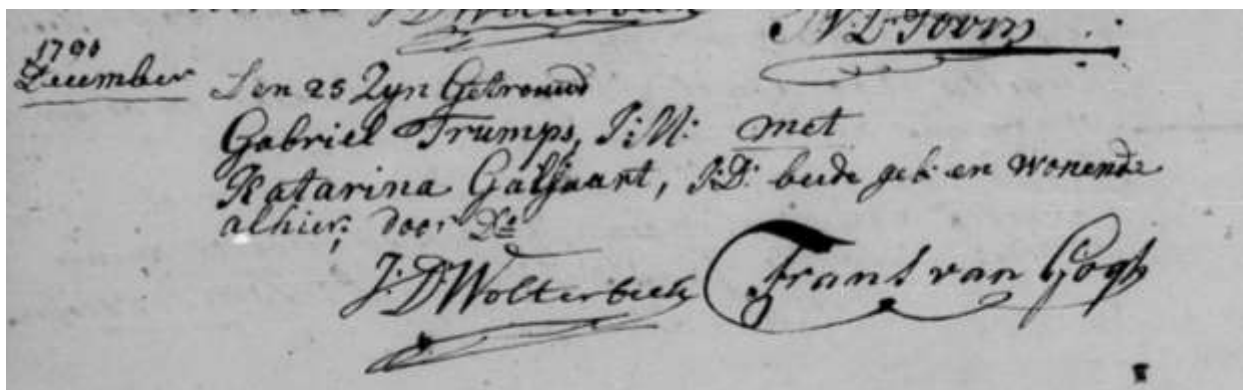 J: D: Wolterbeek
1790
December
Den 25 Zyn Getrouwd
Gabriel Trumps, J: M: met
Katarina Galjaart, J: D: beide geb: en wonende
alhier; door Ds
J: D: Wolterbeek Frans van Gogh